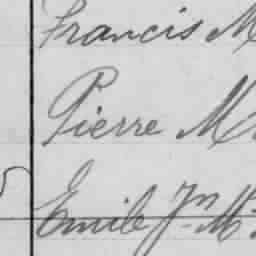 Francis M
Pierre M
Emile Jn M